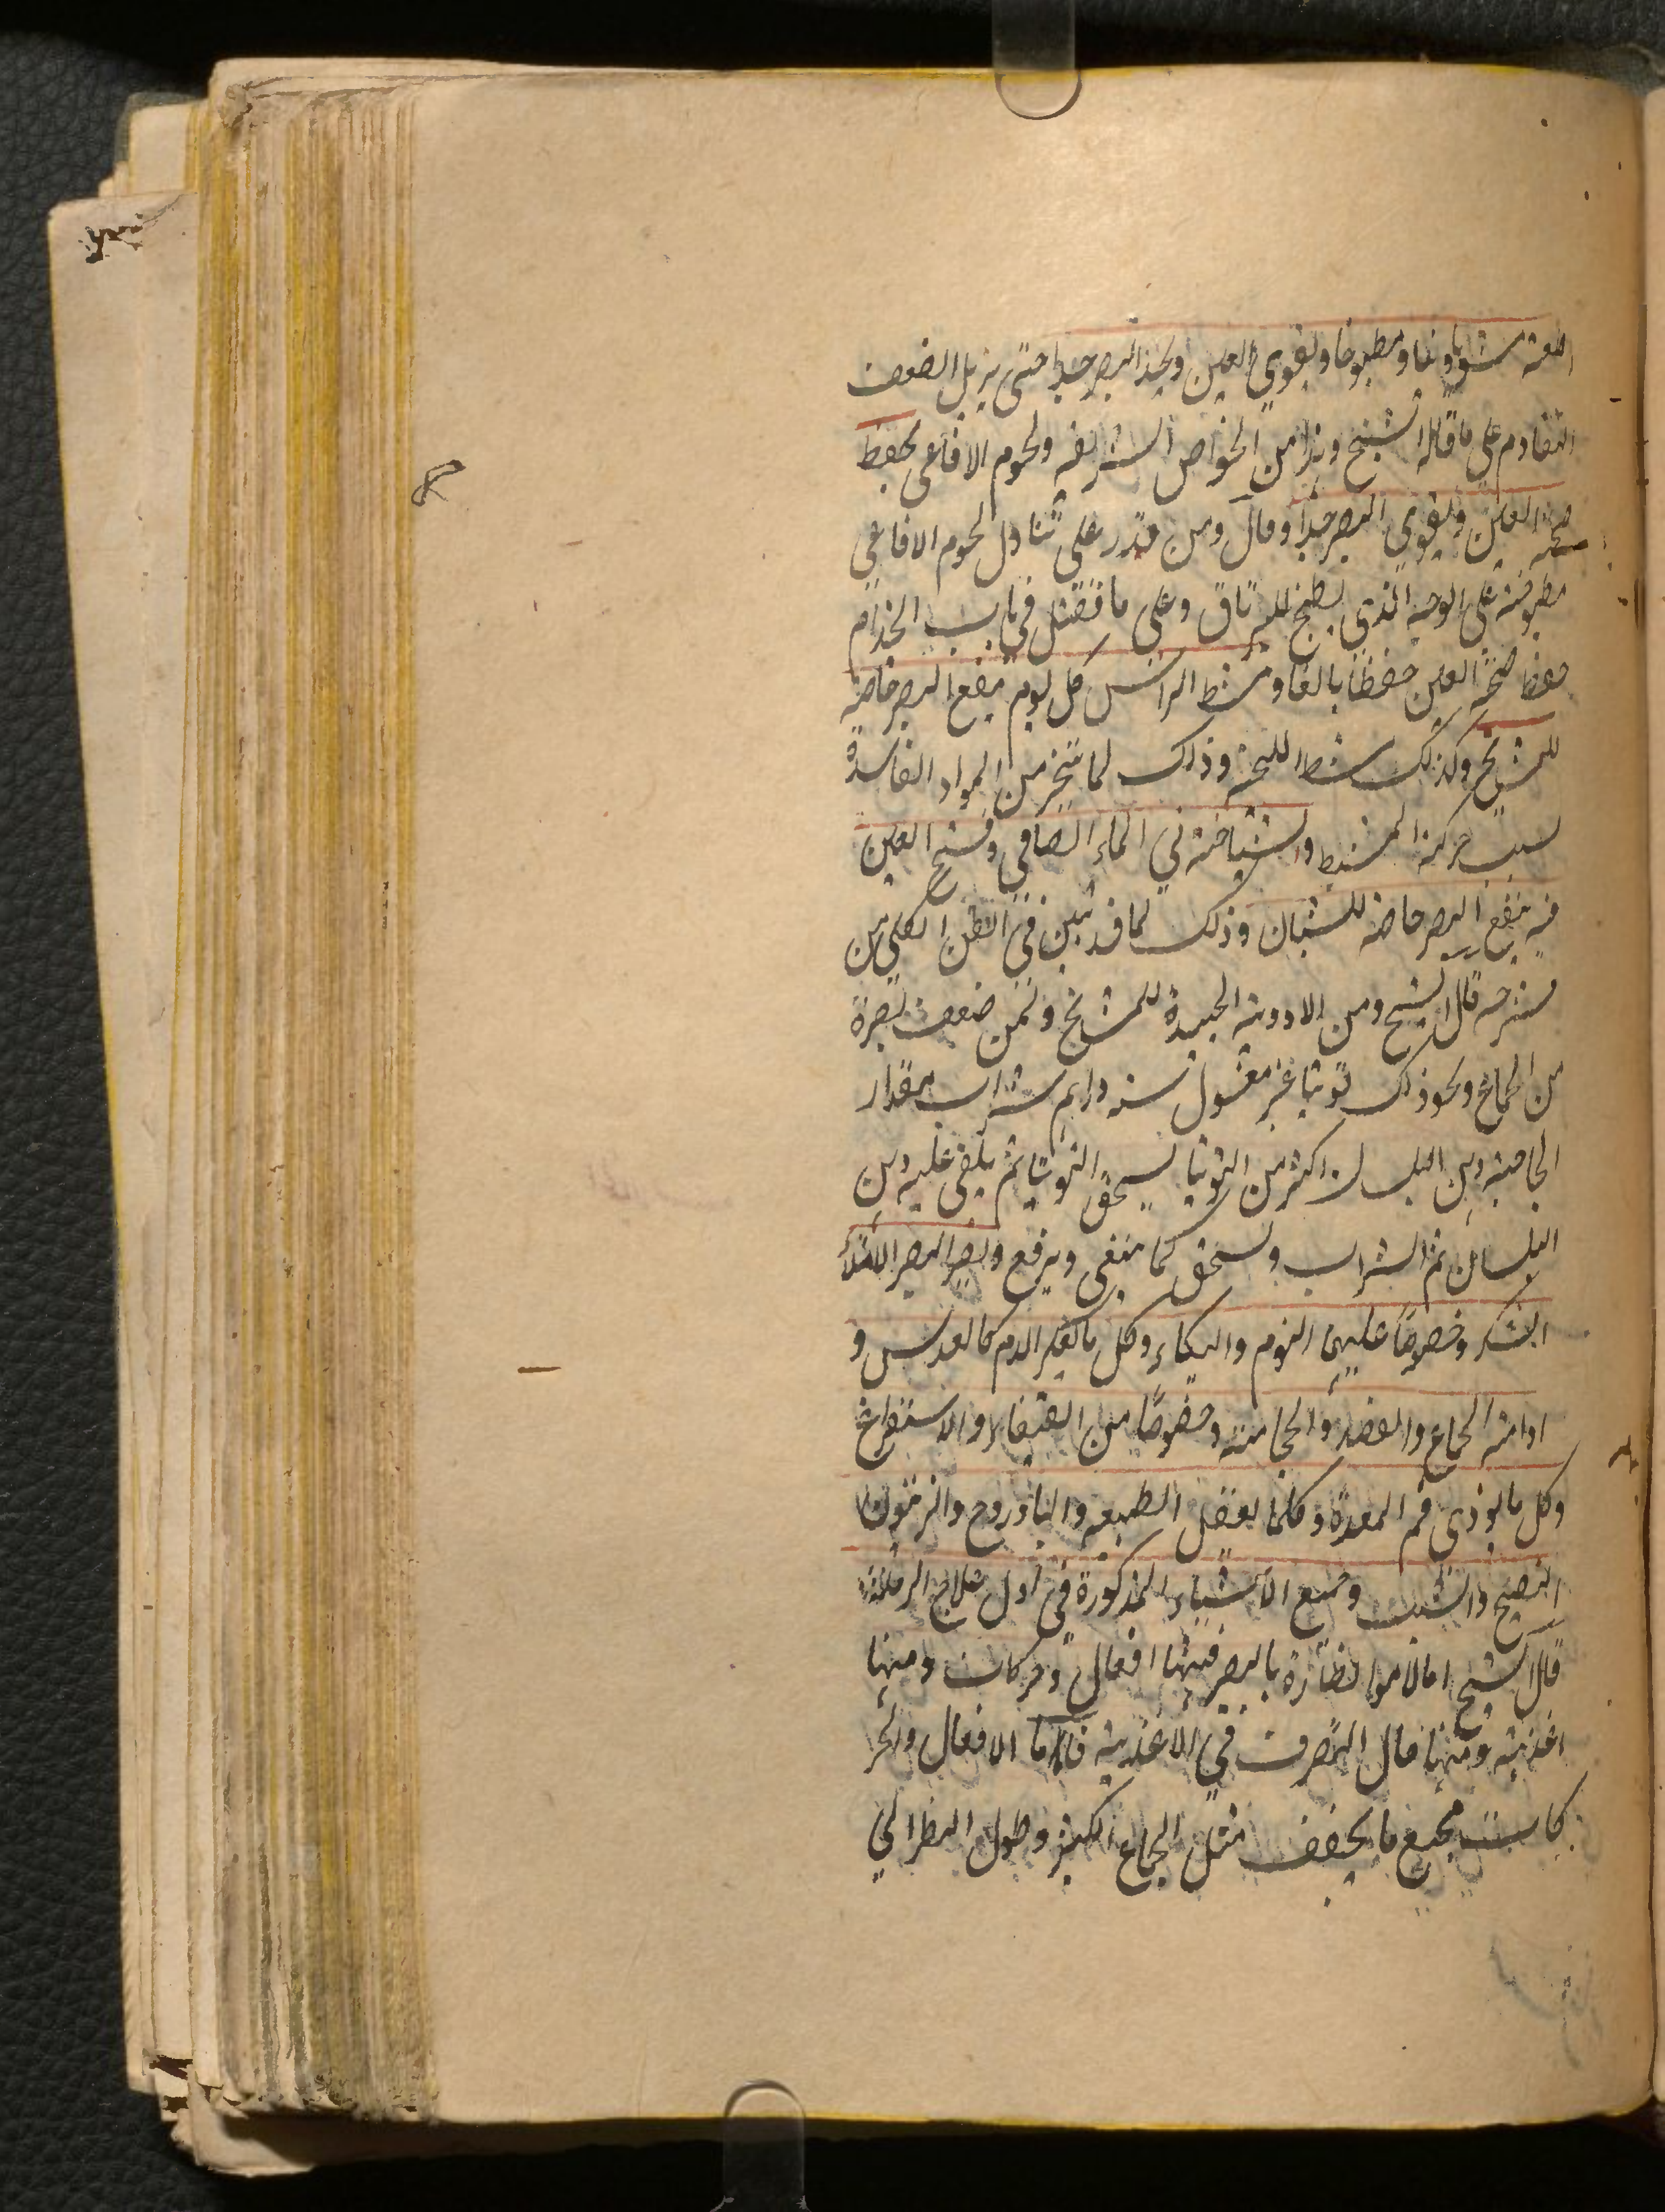 دائما مشويا ومطبوخا ويقوي العين ويحد البصر جدا حتى يزيل الضعف
المتقادم على ما قاله الشيخ وهذا من الخواص الشريفه ولحوم الافاعى يحفظ
صحة العين ويقوي البصر جدا وقال ومن قدر على تناول لحوم الافاعي
مطبوخة على الوجه الذي يطبخ للترياق وعلى ما فصل في باب الجذام
حفظ صحة العين حفظا بالغا ومشط الراس كل يوم ينفع البصر خاصة
للمشايخ وكذلك مشط اللحية وذلك لما يتبخر من المواد الفاسدة
بسبب حركة المشط والشناخته في الماء الصافي وفتح العين
فيه ينفع البصر خاصة للشبان وذلك لما قد تبين في الفن الكلي من
شرحه قال الشيخ ومن الادوية الجيدة للمشايخ ولمن ضعف بصره
من الجماع ونحو ذلك توتيا غير مغسول ستة دراهم شراب بمقدار
الحاجة دهن البلسان اكثر من التوتيا يسحق التوتيا ثم يلقى عليه دهن
البلسان ثم الشراب ويسحق كما ينبغي ويرفع ويضر البصر الامتلاء
السكر وخصوصا عليهما النوم والبكاء وكل ما يعكر الدم كالعدس و
ادامة الجماع والفصد والحجامة وخصوصا من القيفال والاستفراغ
وكل ما يوذي فم المعدة وكلما يعقل الطبيعه والبادروج والزيتون
النضيج والشبت وجميع الاشياء المذكورة في اول علاج الرمد
قال الشيخ اما الامور الضارة بالبصر فمنها افعال وحركات ومنها
اغذية ومنها حال التصرف في الاغذية فاما الافعال والحر
كات فجميع ما يجفف مثل الجماع الكثير وطول النظر الى